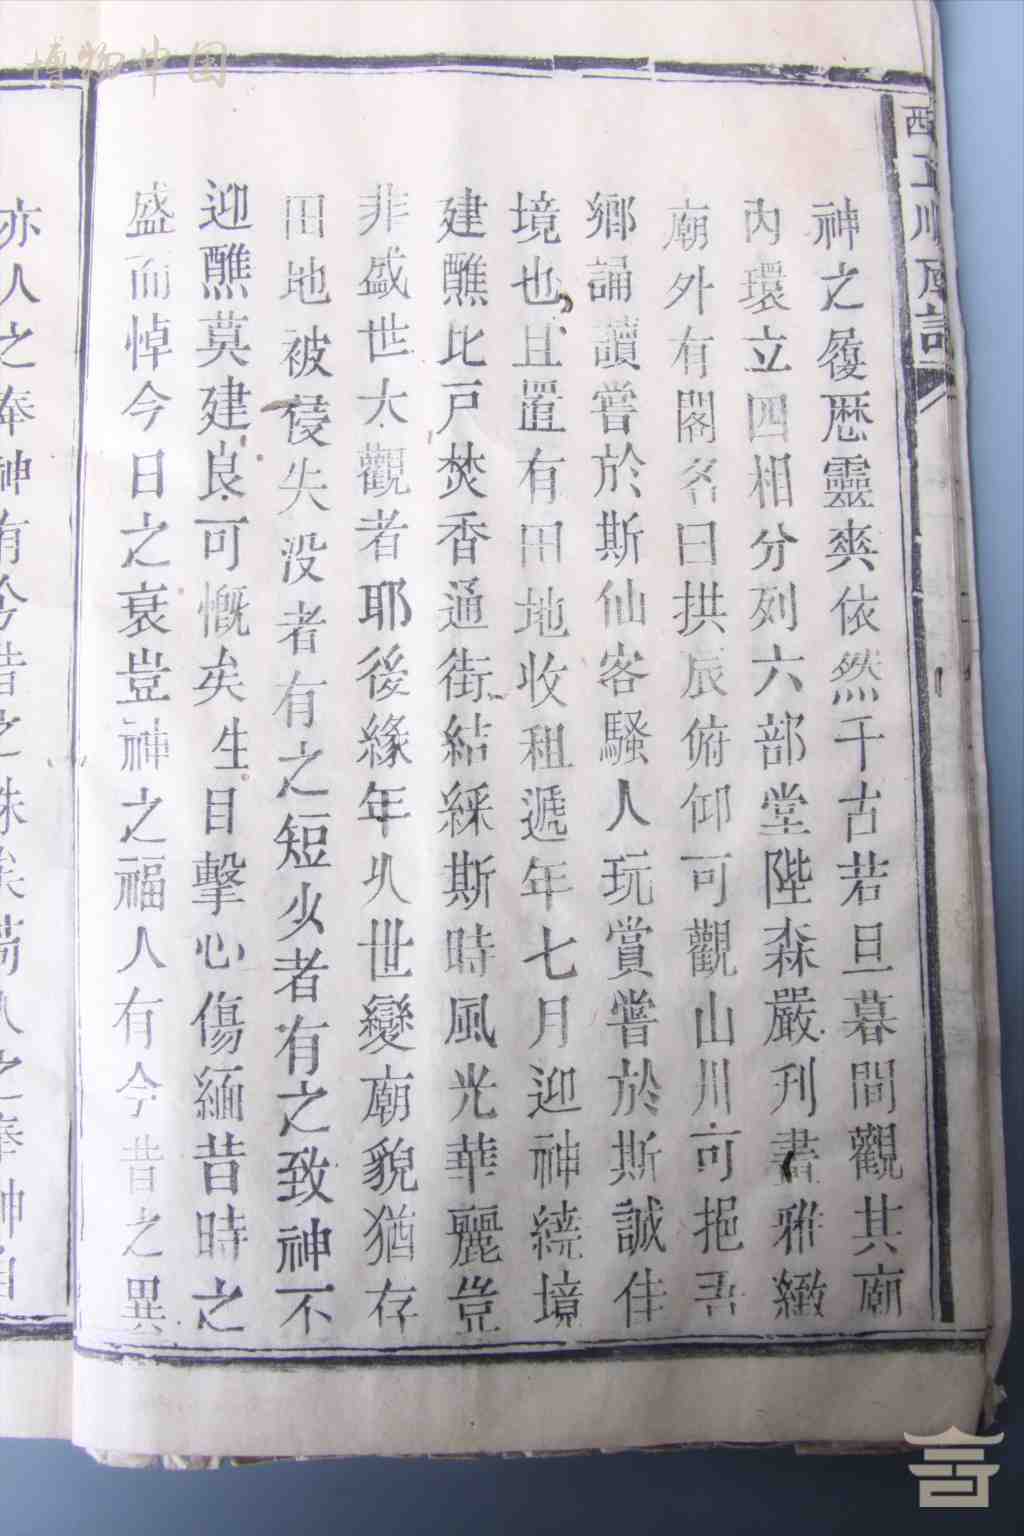 博物中国
神之履歷靈爽依然千古若旦暮間觀其廟
內環立四相分列六部堂陛森嚴刋書雅緻
廟外有閣名曰拱辰俯仰可觀山川可挹吾
鄉誦讀嘗於斯仙客騷人玩賞嘗於斯誠佳
境也且置有田地收租遞年七月迎神繞境
建醮比戸焚香通街結綵斯時風光華麗豈
非盛世大觀者耶後緣年久世變廟貌猶存
田地被侵失没者有之短少者有之致神不
迎醮莫建良可慨矣生目擊心傷緬昔時之
盛而悼今日之衰豈神之福人有今昔之異
亦人之奉神有今昔之殊矣